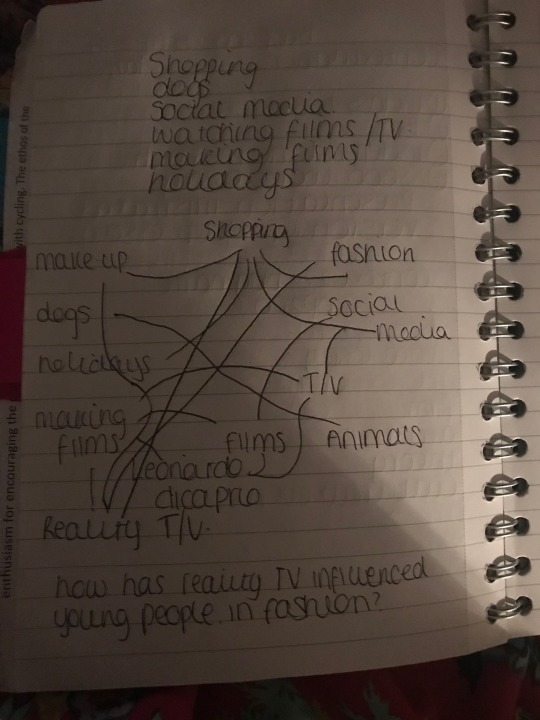 Shopping
dogs
social media
watching films / TV
making films
holidays
Shopping
make up
fashion
dogs
social
media
holidays
T/V
making
films
films
Animals
Leonardo
dicaprio
Reality T/V.
how has reality TV influenced
young people in fashion?
with cycling. The ethos of the
enthusiasm for encouraging the